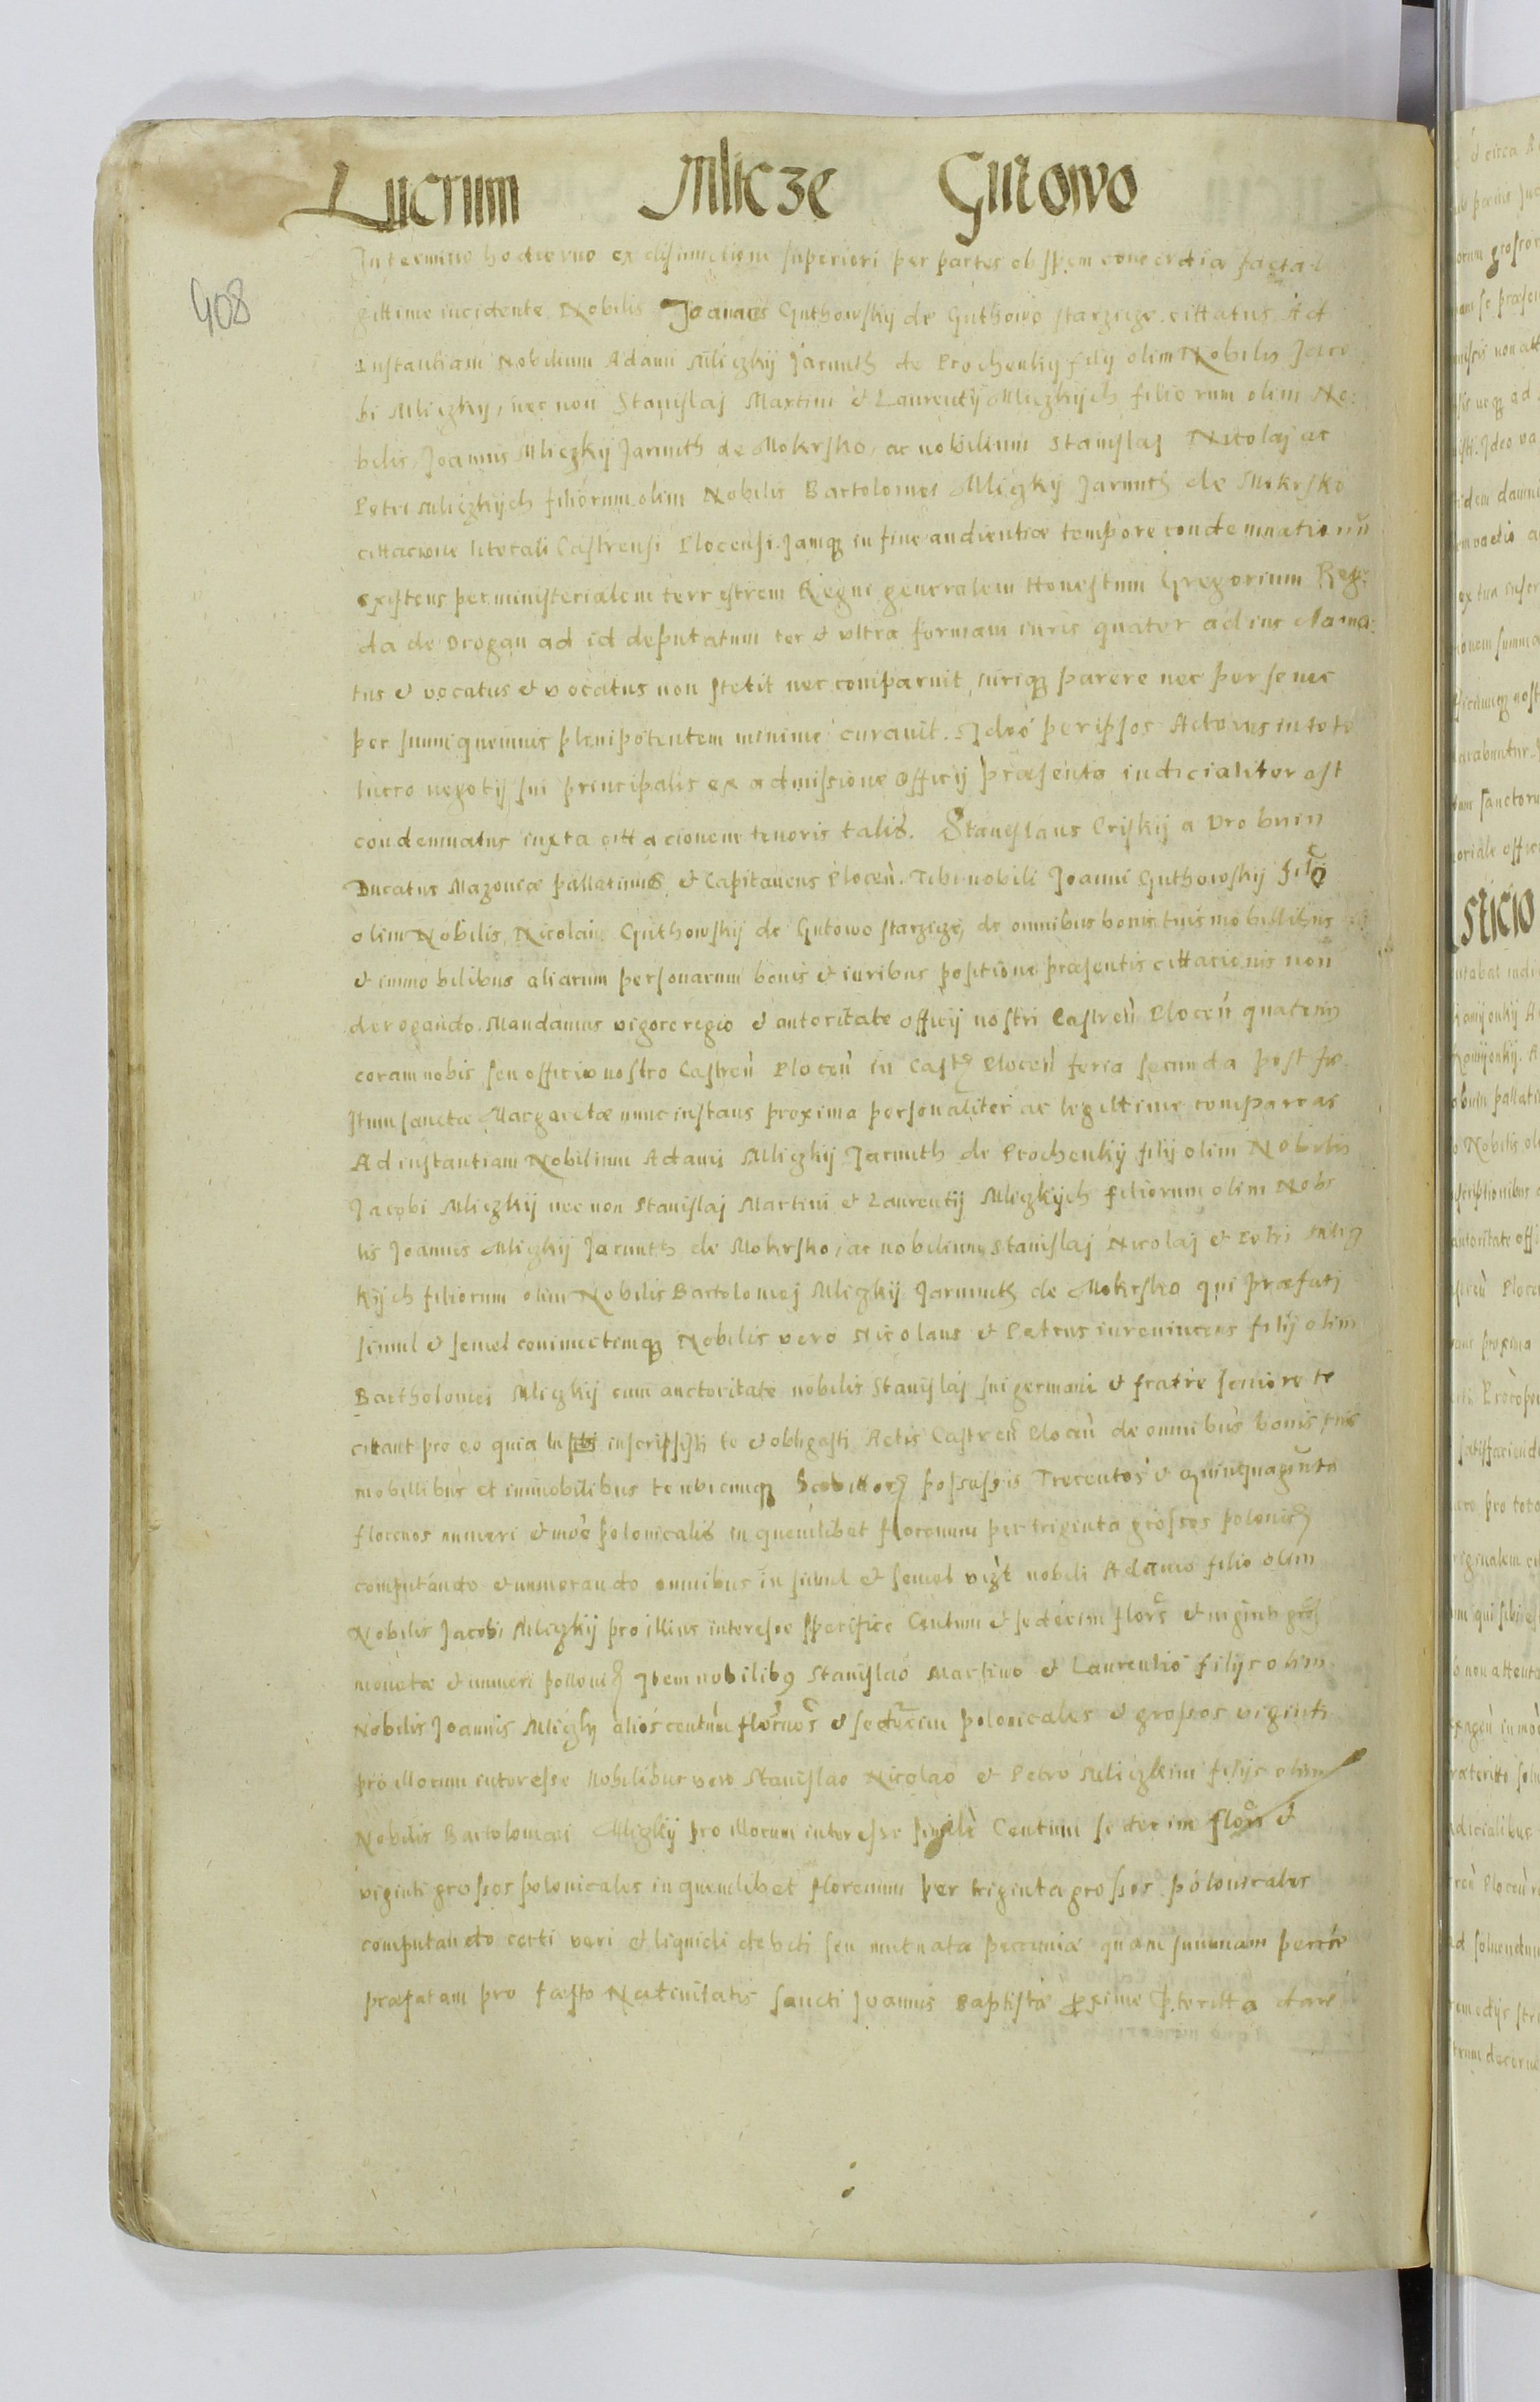 Lucrum Mlicze Gutowo
908
In termino hodierno ex disiunctione superiori per partes ob spem concordiæ facta le
gittime incidente Nobilis Joannes Guthowskij de Guthowo starzicze cittatus Ad
Instantiam Nobilium Adami Mliczkij Jarnuth de Prochenkij filij olim Nobilis Jaco
bi Mliczkij, nec non Stanislaj Martini et Laurentij Mliczkijch filiorum olim No:
bilis Joannis Mliczkij Jarnuth de Mokrsko, ac nobilium Stanislaj Nicolaj ac
Petri Mliczkijch filiorum olim Nobilis Bartolomei Mliczkij Jarnuth de Mokrsko
cittacione literali Castrensi Plocensi. Jamq in fine audientiæ tempore condemnationũ
existens per ministerialem terrestrem Regni generalem Honestum Gregorium
da de Drogan ad id deputatum ter et ultra formam iuris quater ad ius clama:
tus et vocatus et vocatus non stetit nec comparuit, iuriq parere nec per se nec
per suum quemvis plenipotentem minime curavit. Ideo per ipsos Actores in toto
lucro negotij sui principalis ex admissione officij præsentis iudicialiter est
condemnatus iuxta cittacionem tenoris talis. Stanislaus Criskij a Drobnin
Ducatus Mazoviæ pallatinus et Capitaneus Plocen. Tibi nobili Joanni Guthowskij filio
olim Nobilis Nicolai Guthowskij de Gutowo starzicze, de omnibus bonis tuis mobillibus
et immobilibus aliarum personarum bonis et iuribus positione præsentis cittationis non
derogando. Mandamus vigore regio et autoritate officij nostri Castren Plocen quatenus
coram nobis seu officio nostro Castren Plocen in Castro Plocen feria secunda post fæ
stum sanctæ Margaretæ nunc instans proxima personaliter ac legittime compareas
Ad instantiam Nobilium Adami Mliczkij Jarnuth de Prochenkij filij olim Nobilis
Jacobi Mliczkij nec non Stanislaj Martini et Laurentij Mliczkijch filiorum olim Nobi
lis Joannis Mliczkij Jarnuth de Mokrsko, ac nobilium Stanislaj Nicolaj et Petri Mlicz
kijch filiorum olim Nobilis Bartolomej Mliczkij Jarnuth de Mokrsko qui præfati
simul et semel coniunctimq Nobilis vero Nicolaus et Petrus iuvenincens filij olim
Bartholomei Mliczkij cum auctoritate nobilis Stanislaj sui germani et fratre seniore te
cittant pro eo quia inscripsisti te et obligasti Actis Castren Plocen de omnibus bonis tuis
mobillibus et immobilibus te ubicumq possessis Trecentos et quinquaginta
florenos numeri et monetæ polonicalis in quemlibet florenum per triginta grossos polonic
computando et numerando omnibus in simul et semel vizt nobili Adamo filio olim
Nobilis Jacobi Mliczkij pro illius interesse specifice Centum et sedecim flors et viginti gros
monetæ et numeri polloni Item nobilibus Stanislao Martino et Laurentio filijs olim
Nobilis Joannis Mliczkij alios centum florenos et sedecim polonicales et grossos viginti
pro illorum interesse Nobilibus vero Stanislao Nicolao et Petro Mliczkim filijs olim
Nobilis Bartolomæi Mliczkij pro illorum interesse simili Centum sedecim flor et
viginti grossos polonicales in quemlibet florenum per triginta grossos polonicales
computando certi veri et liquidi debiti seu mutuatæ pecuniæ quam summam pecuniæ
præfatam pro fæsto Nativitatis sancti Joannis Baptistæ proxime præteritta dare